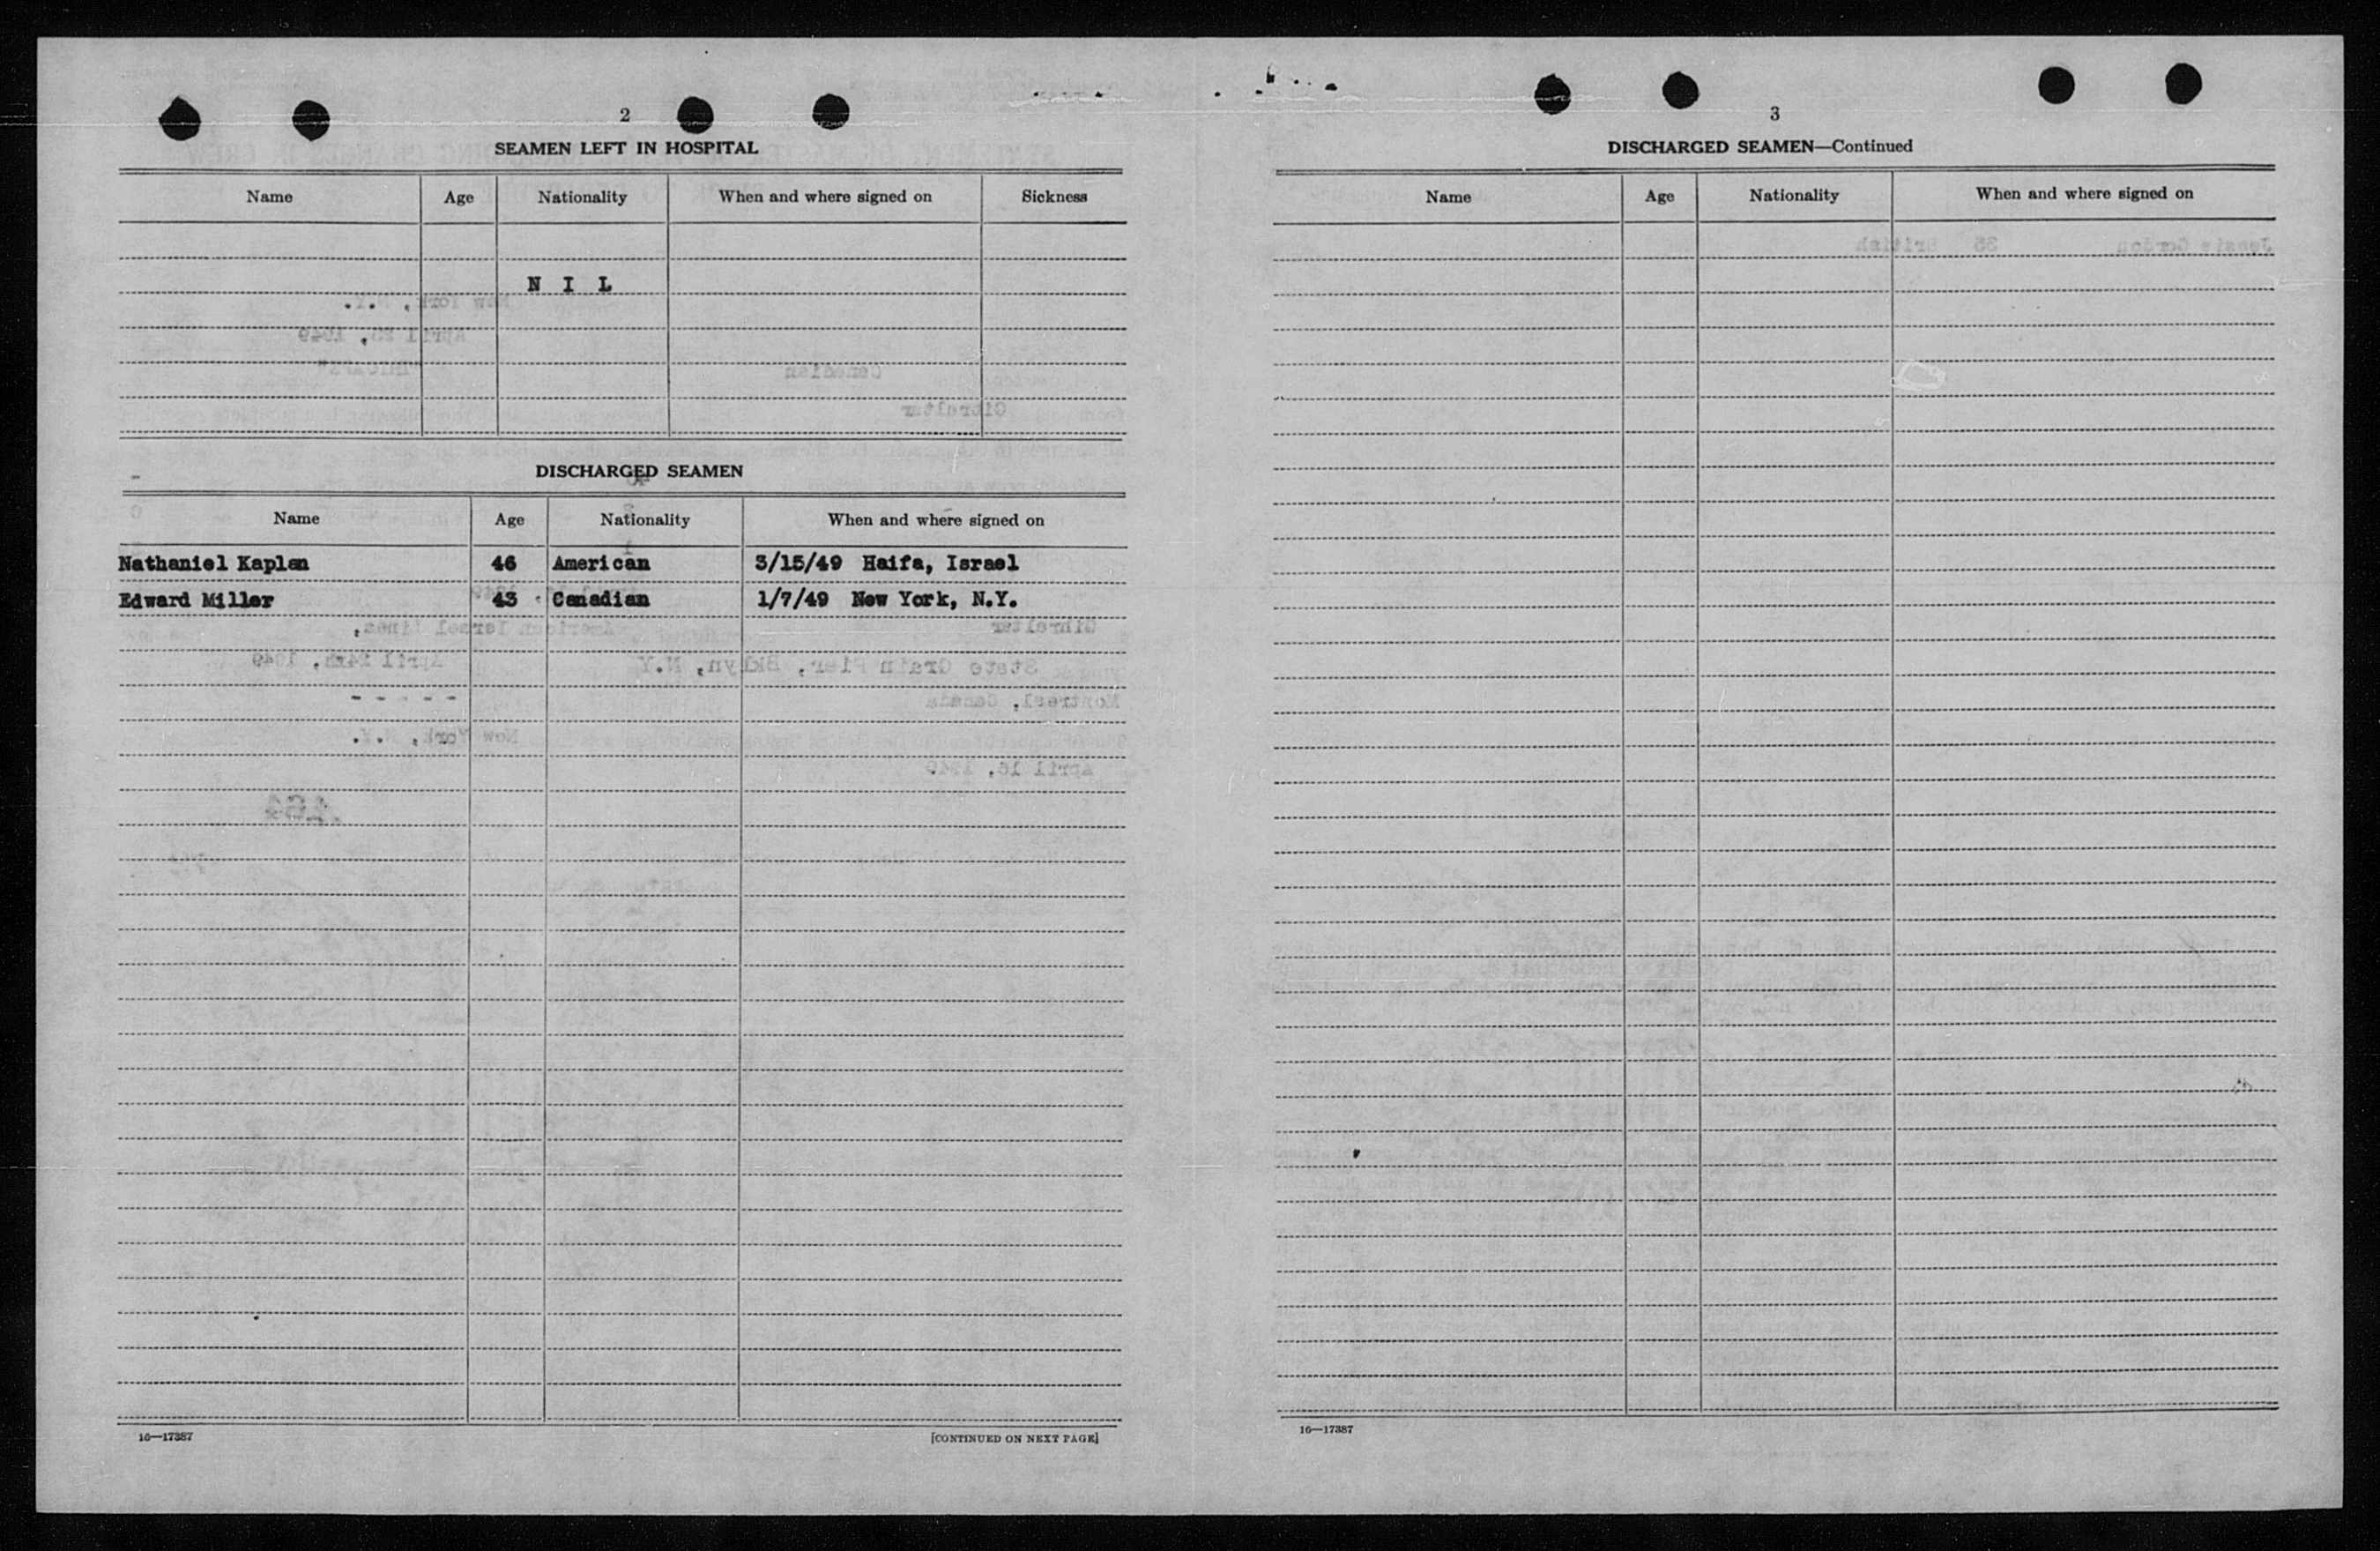 2
SEAMEN LEFT IN HOSPITAL
Name Age Nationality When and where signed on Sickness
N I L
DISCHARGED SEAMEN
Name Age Nationality When and where signed on
Nathaniel Kaplan 46 American 3/15/49 Haifa, Israel
Edward Miller 43 Canadian 1/7/49 New York, N.Y.
16—17387 [CONTINUED ON NEXT PAGE]
3
DISCHARGED SEAMEN—Continued
Name Age Nationality When and where signed on
16—17387